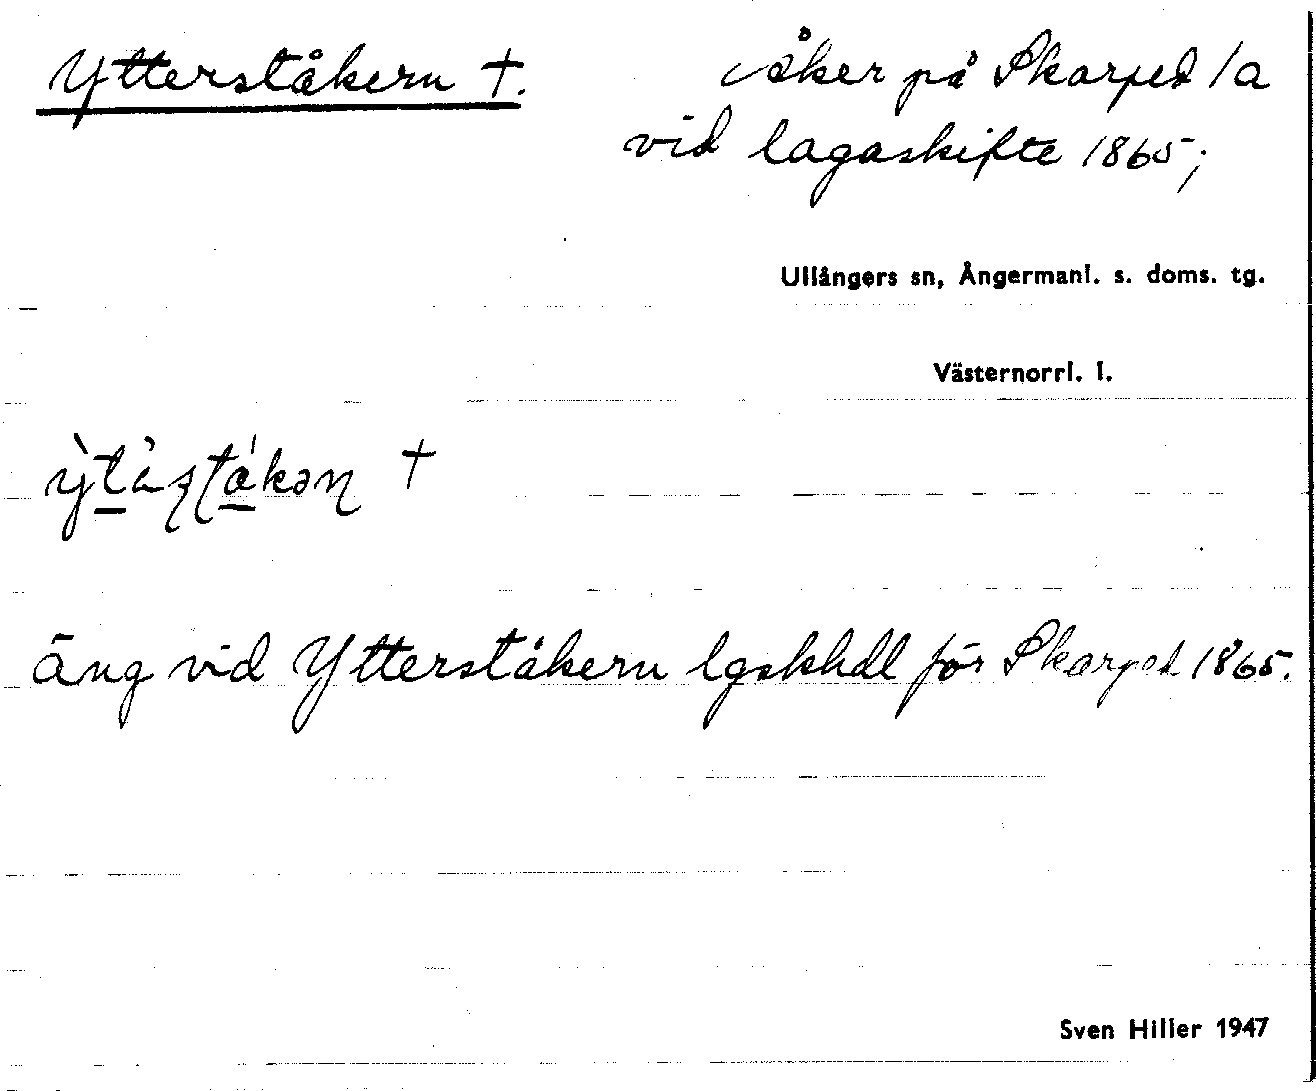 Ytterståkern †.
åker på Skarped 1a
vid lagaskifte 1865;
Ullångers sn, Ångermanl. s. doms. tg.
Västernorrl. l.
†
äng vid Ytterståkern lgskhdl för Skarped 1865.
Sven Hiller 1947